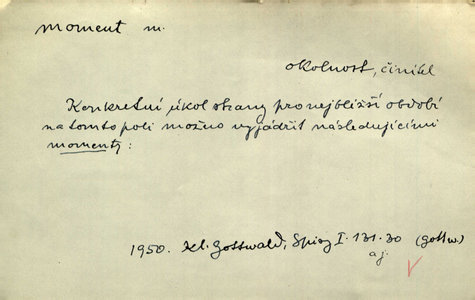 moment m.
okolnost, činitel
Konkretní úkol strany pro nejbližší období
na tomto poli možno vyjádřit následujícími
momenty:
1950. Kl. Gottwald, Spisy I. 131.30 (Gottw.)
aj.